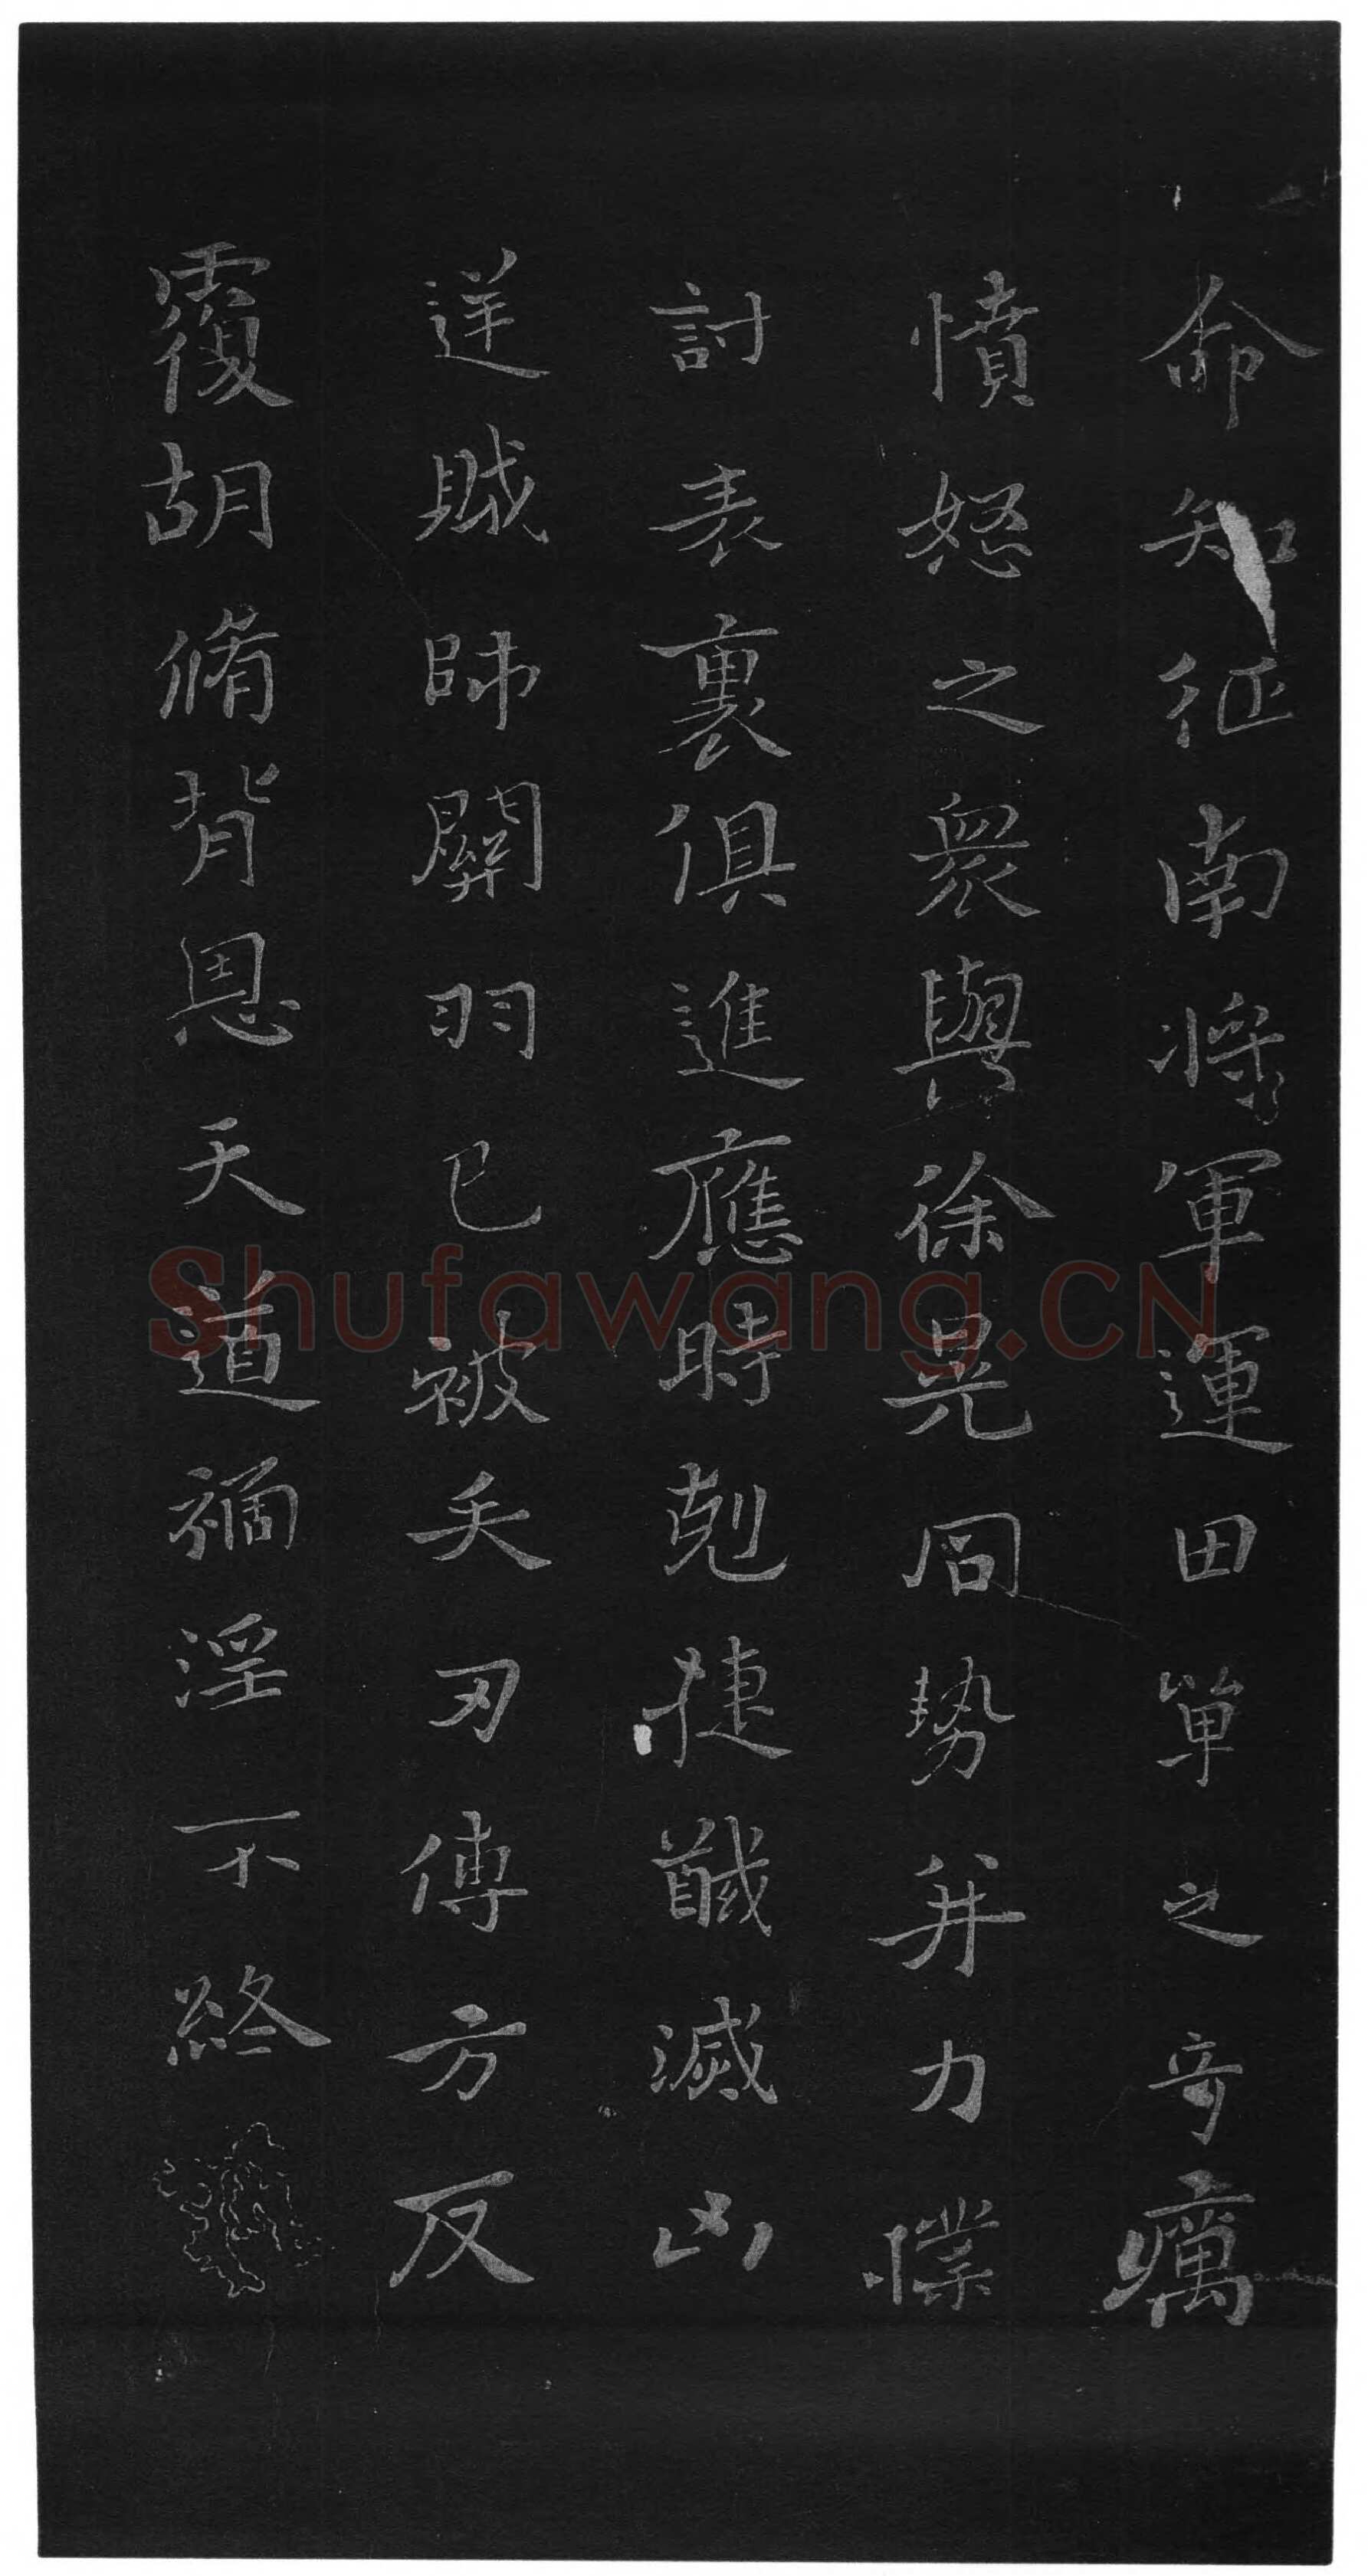 命知征南將軍運田單之奇厲
憤怒之眾與徐晃同勢并力撲
討表裏俱進應時剋捷馘滅凶
逆賊帥關羽已被矢刃傅方反
覆胡脩背恩天道禍淫不終
Shufawang.CN